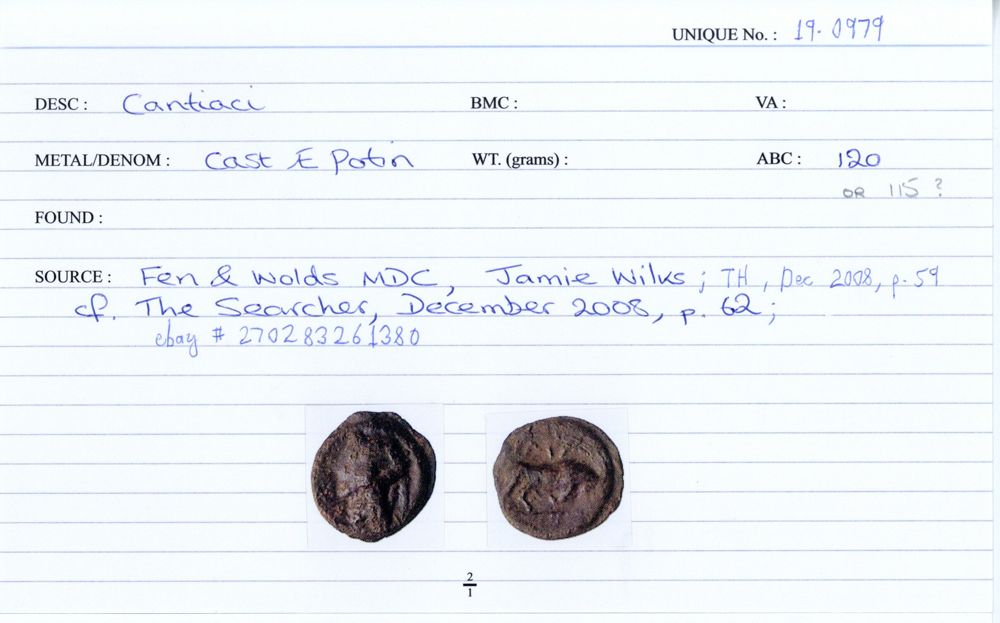 UNIQUE No. : 19.0979
DESC : Cantiaci BMC : VA :
METAL/DENOM : Cast Æ Potin WT. (grams) : ABC : 120
OR 115 ?
FOUND :
SOURCE : Fen & Wolds MDC, Jamie Wilks ; TH, Dec 2008, p. 59
cf. The Searcher, December 2008, p. 62 ;
ebay # 270283261380
2
1